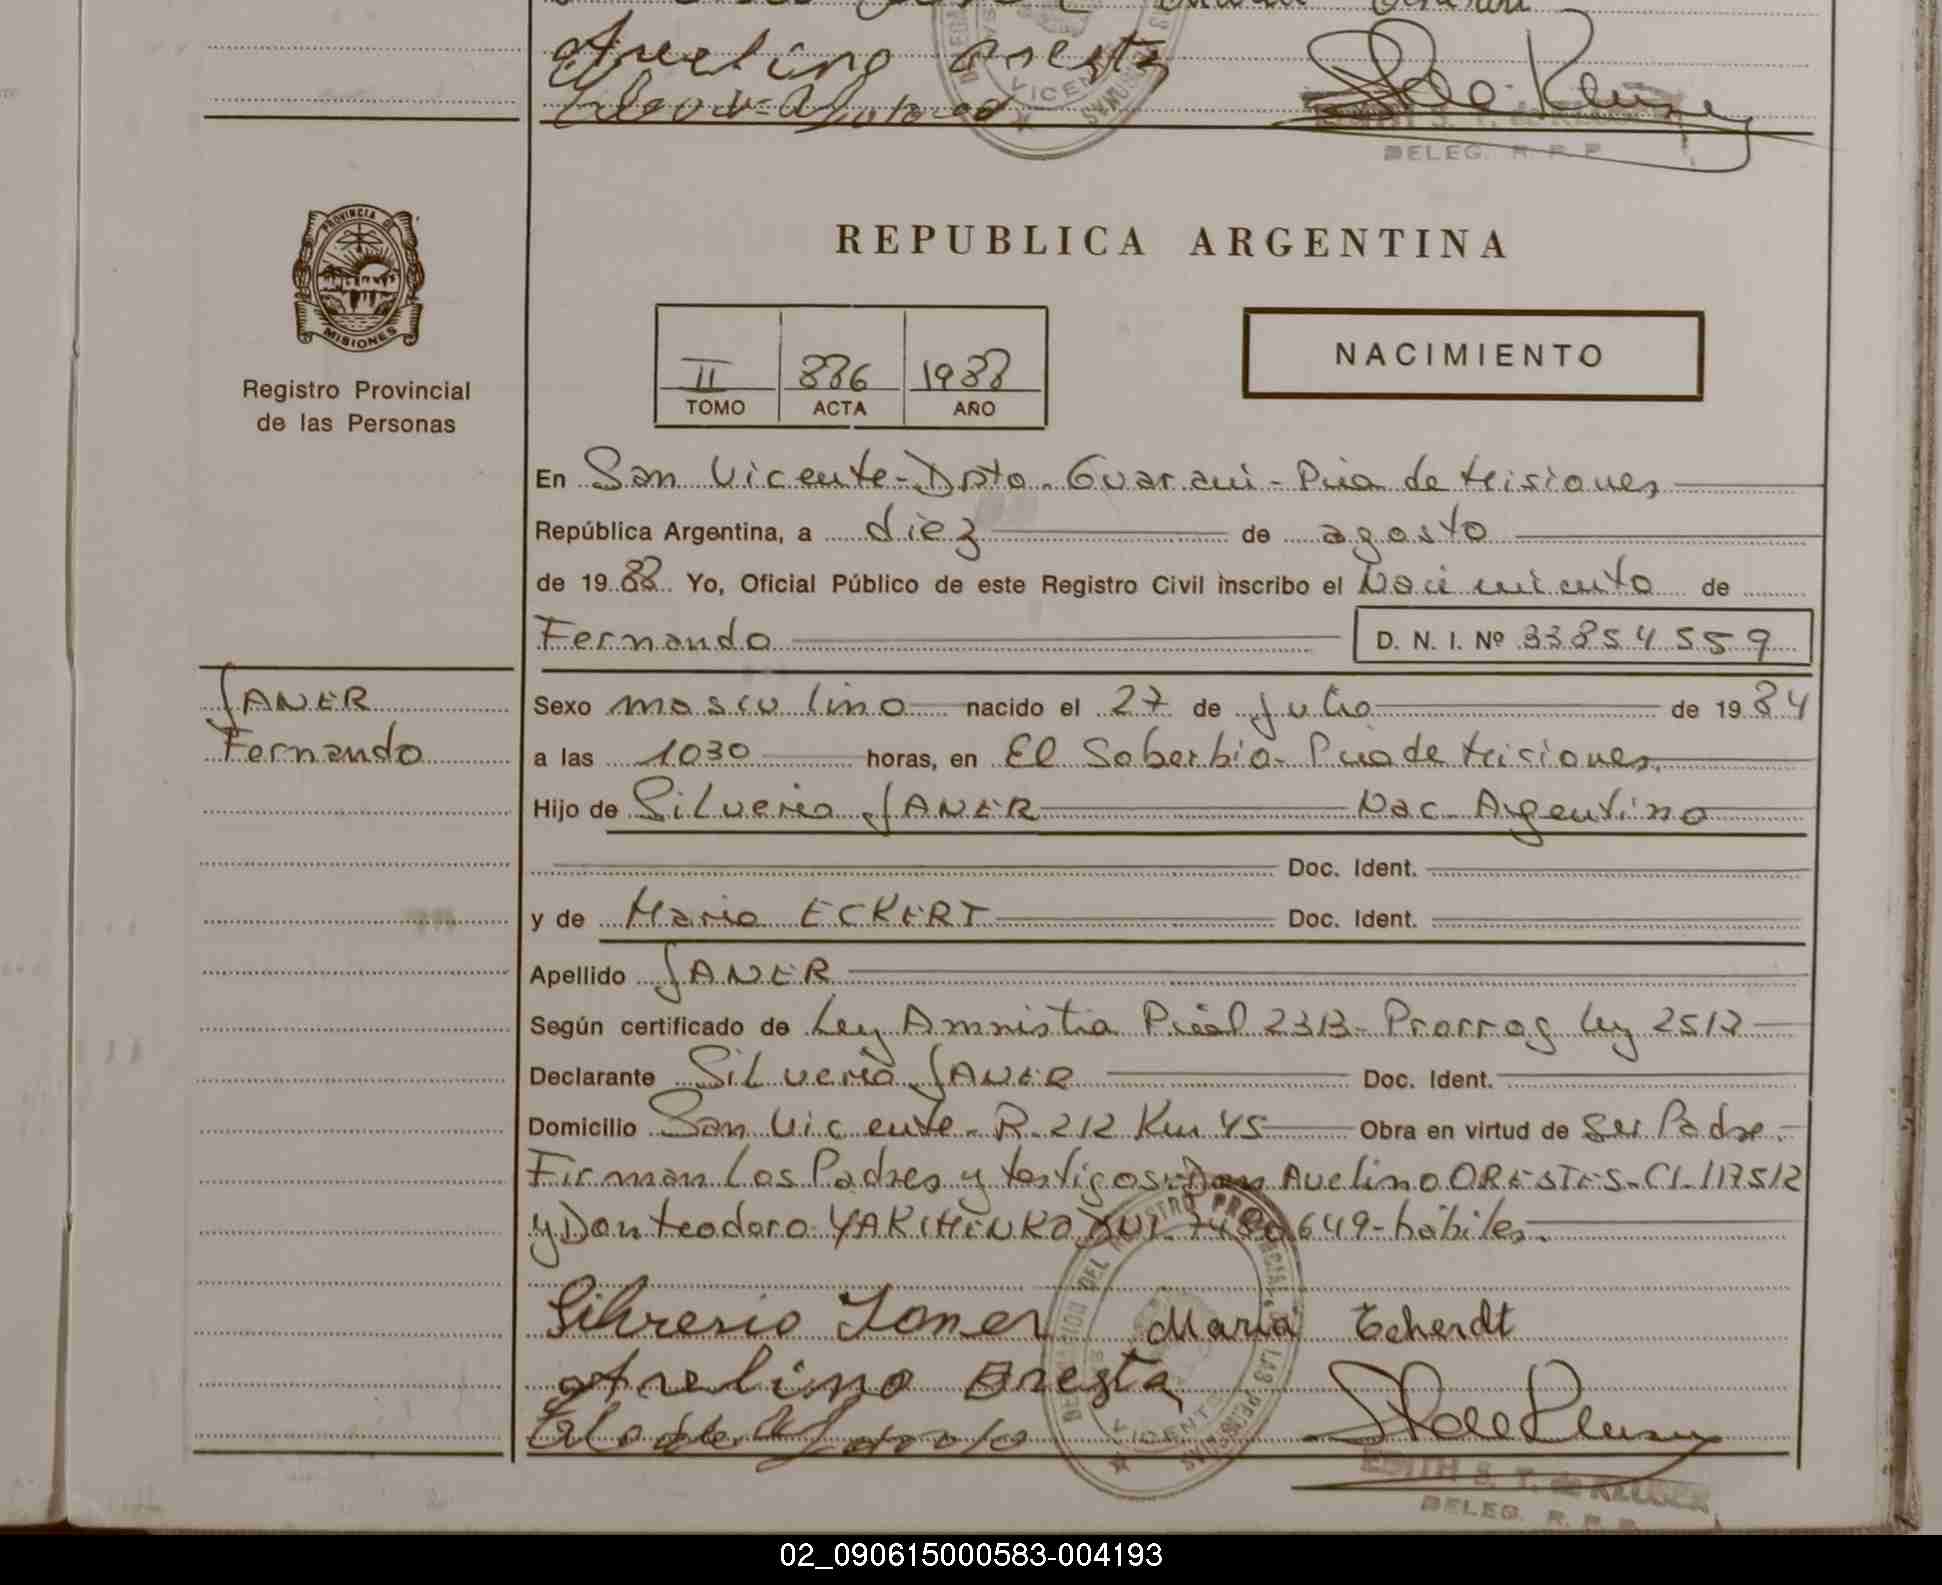 Avelino Oresta
VICENTE
DELEG. R. P. P.
PROVINCIA DE
MISIONES
Registro Provincial
de las Personas
REPUBLICA ARGENTINA
II 886 1988
TOMO ACTA AÑO
NACIMIENTO
En San Vicente - Dpto. Guaraní - Pcia de Misiones
República Argentina, a diez de agosto
de 1988 Yo, Oficial Público de este Registro Civil inscribo el Nacimiento de
Fernando D. N. I. Nº 33854559
JANER
Fernando
Sexo masculino nacido el 27 de julio de 1984
a las 1030 horas, en El Soberbio - Pcia de Misiones.
Hijo de Silverio JANER Nac. Argentino
Doc. Ident.
y de Maria ECKERT Doc. Ident.
Apellido JANER
Según certificado de Ley Amnistia Pcial 2313 - Prorrog Ley 2517
Declarante Silverio JANER Doc. Ident.
Domicilio San Vicente - R. 212 Km 45 Obra en virtud de ser Padre.
Firman Los Padres y testigos: Don Avelino ORESTES - CI. 117512
y Don teodoro YAKIMENKO DNI. 7480649 - hábiles.
Silverio Janer Maria Eckerdt
Avelino Oresta
EDITH S. T. de
DELEG. R. P. P.
02_090615000583-004193